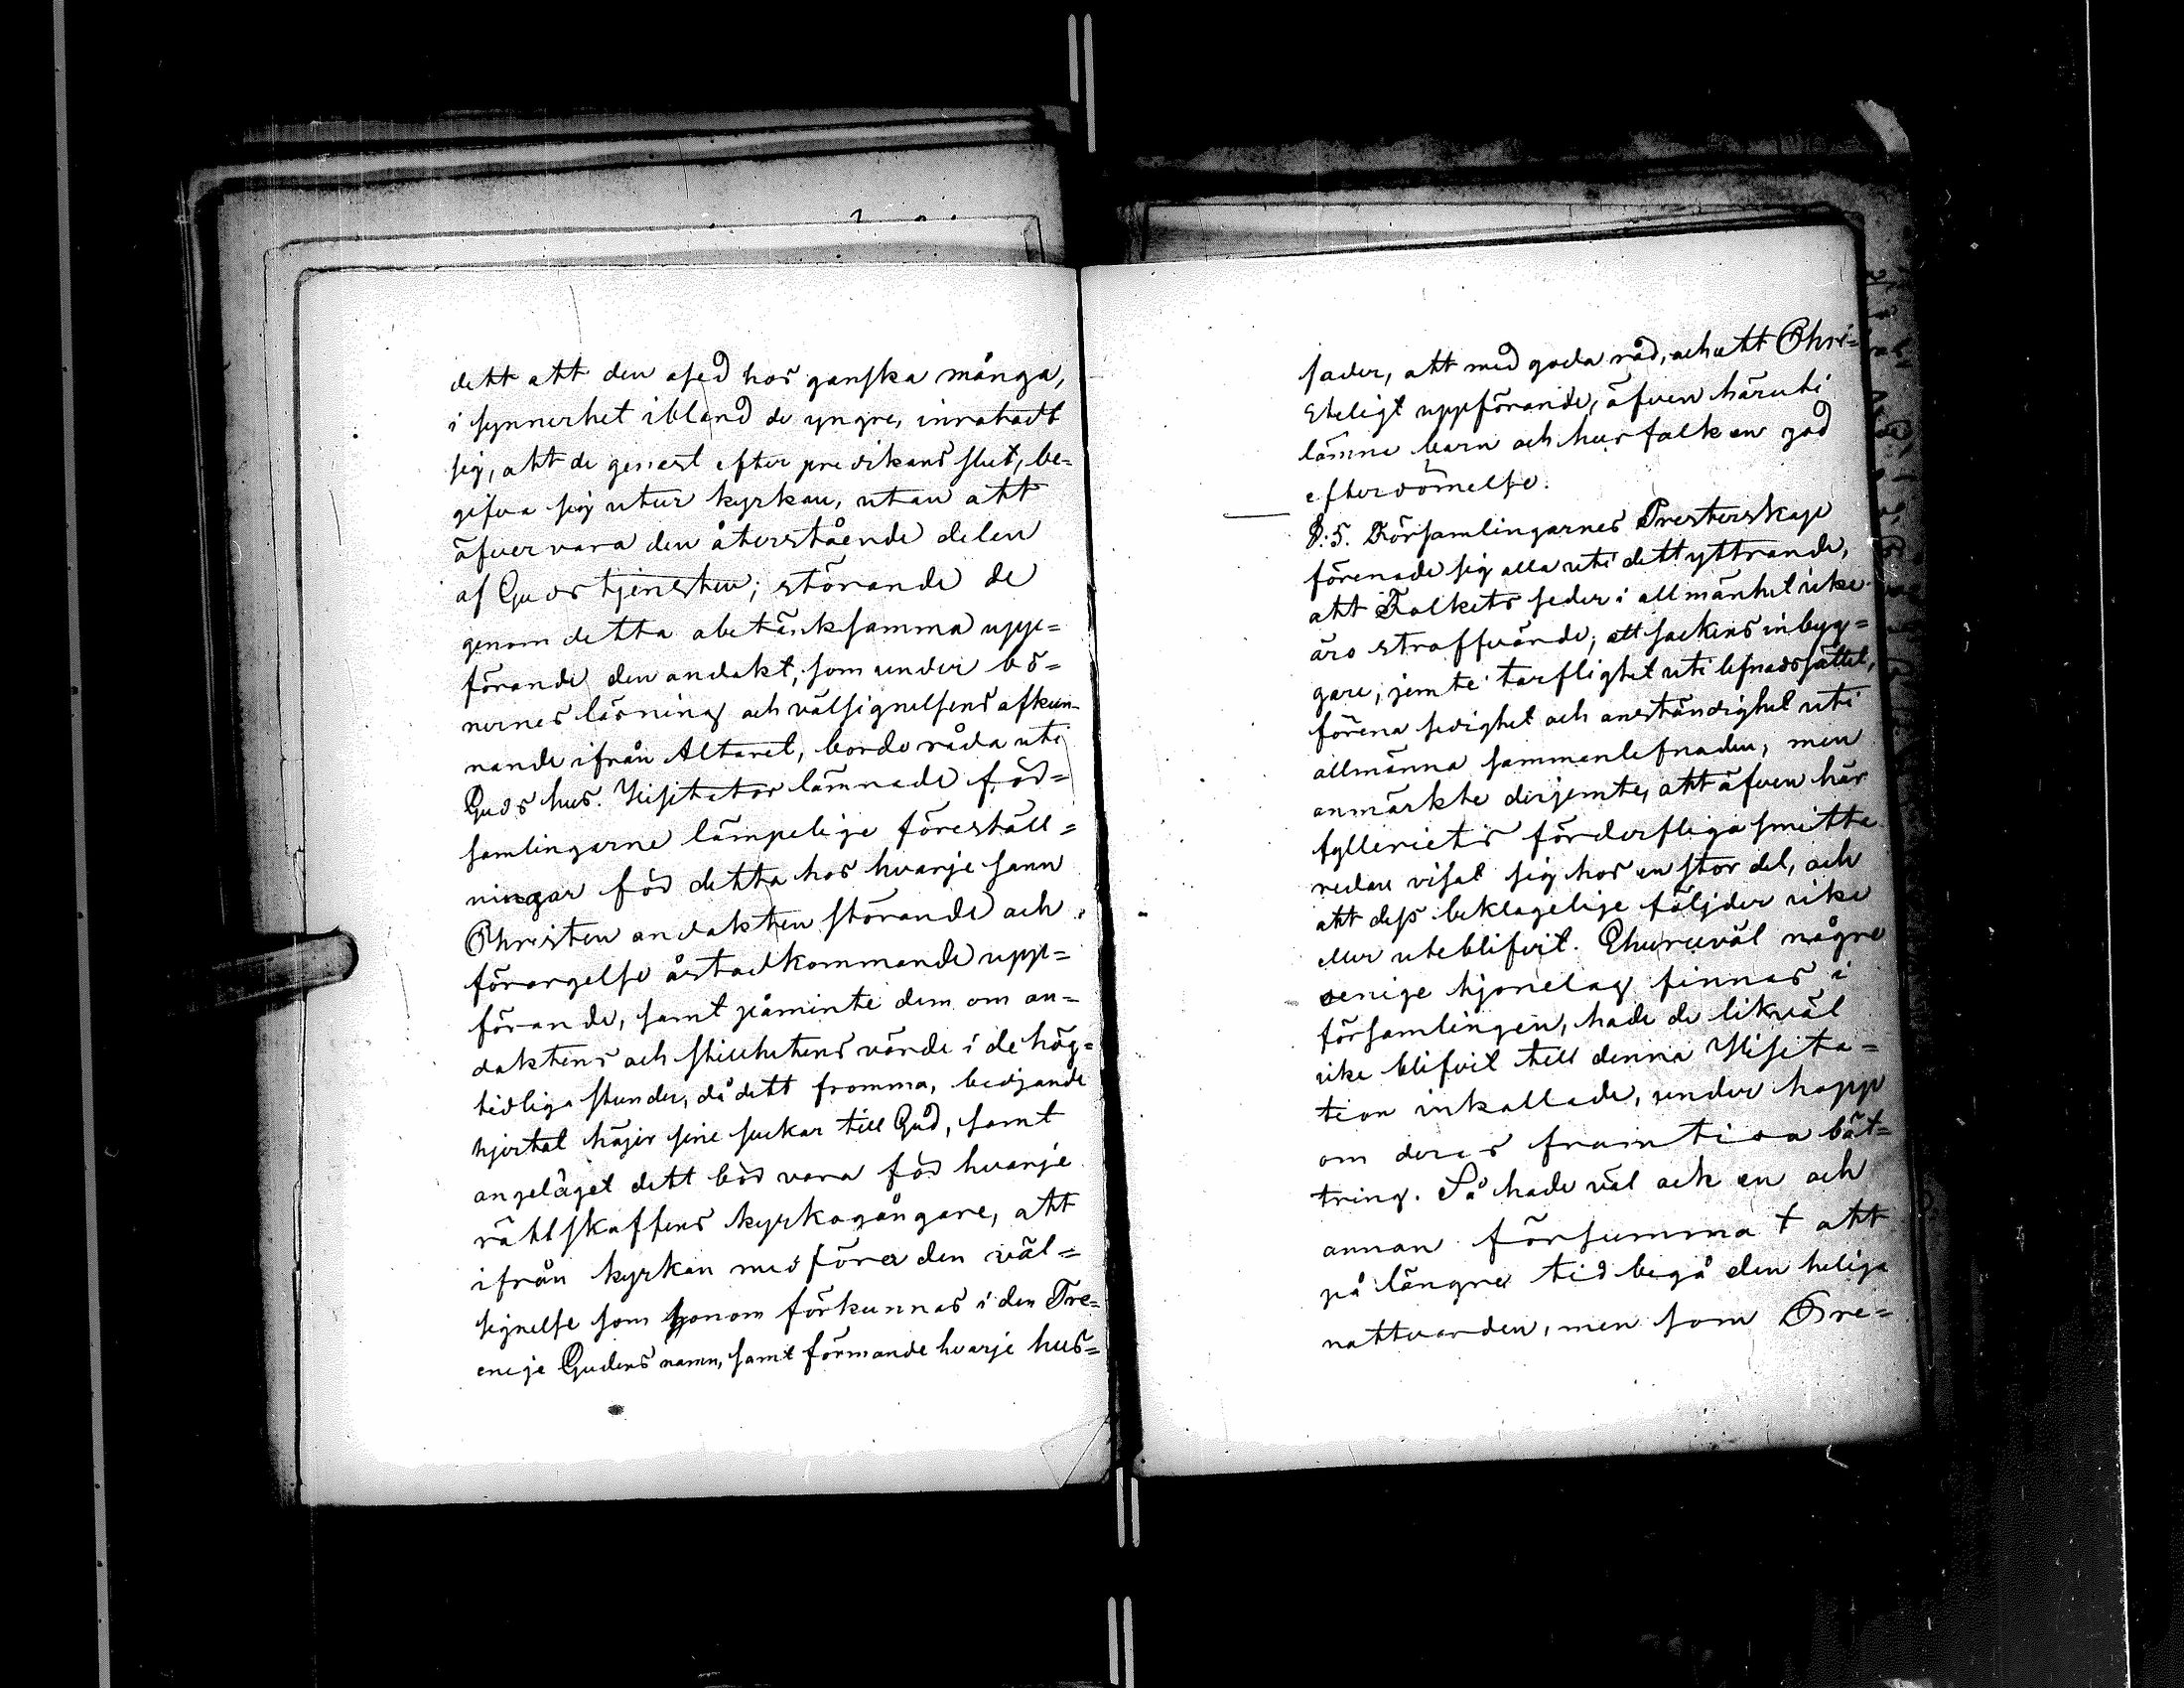 dett att den osed hos ganska många,
i synnerhet ibland de yngre, inrotadt
sig, att de genast efter predikans slut, be=
gifva sig utur kyrkan, utan att
äfvervara den återstående delen
af Gudstjensten; störande de
genom detta obetänksamma upp=
förande den andakt, som under bö=
nernes läsning och välsignelsens afkun=
nande ifrån Altaret, borde råda uti
Guds hus. Visitator lämnade för=
samlingarne lämpelige föreställ=
ningar för detta hos hvarje sann
Christen andakten störande och
förargelse åstadkommande upp=
förande, samt påminte dem om an=
daktens och stillhetens värde i de hög=
tidliga stunder, då dett fromma, bedjande
hjertat höjer sine suckar till Gud, samt
angeläget dett bör vara för hvarje
rättskaffens kyrkogångare, att
ifrån kyrkan medföra den väl=
signelse som honom förkunnas i den Tre=
enige Gudens namn, samt förmande hvarje hus=
fader, att med goda råd, och ett Chri=
steligt uppförande, äfven häruti
lämna barn och husfolk en god
efterdömelse.
§:5. Församlingarnes Presterskap
förenade sig alla uti dett yttrande,
att Folkets seder i allmänhet icke
äro straffvärde; att sockens inbyg=
gare, jemte tarflighet uti lefnadssättet,
förena sedighet och anständighet uti
allmänna sammanlefnaden, men
anmärkte derjemte, att äfven här
fylleriets förderfliga smitta
redan visat sig hos en stor del, och
att dess beklagelige följder icke
eller uteblifvit. Ehuruväl någre
oenige hjonelag finnas i
församlingen, hade de likväl
icke blifvit till denna Visita=
tion inkallade, under hopp
om deras framtida bät=
tring. Så hade väl ock en och
annan försummat att
på längre tid begå den heliga
nattvarden, men som Pre=